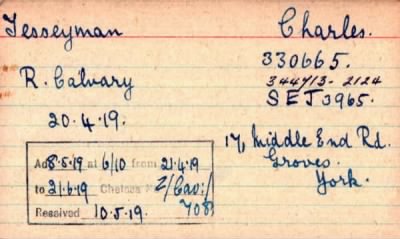 Tesseyman Charles.
330665.
344713-2124
R. Calvary SEJ3965.
20.4.19.
17, Middle End Rd.
Groves.
York.
Ad 8.5.19 at 6/10 from 21.4.19
to 21.6.19 Chelsea
2/Cav:/
Received 10.5.19.